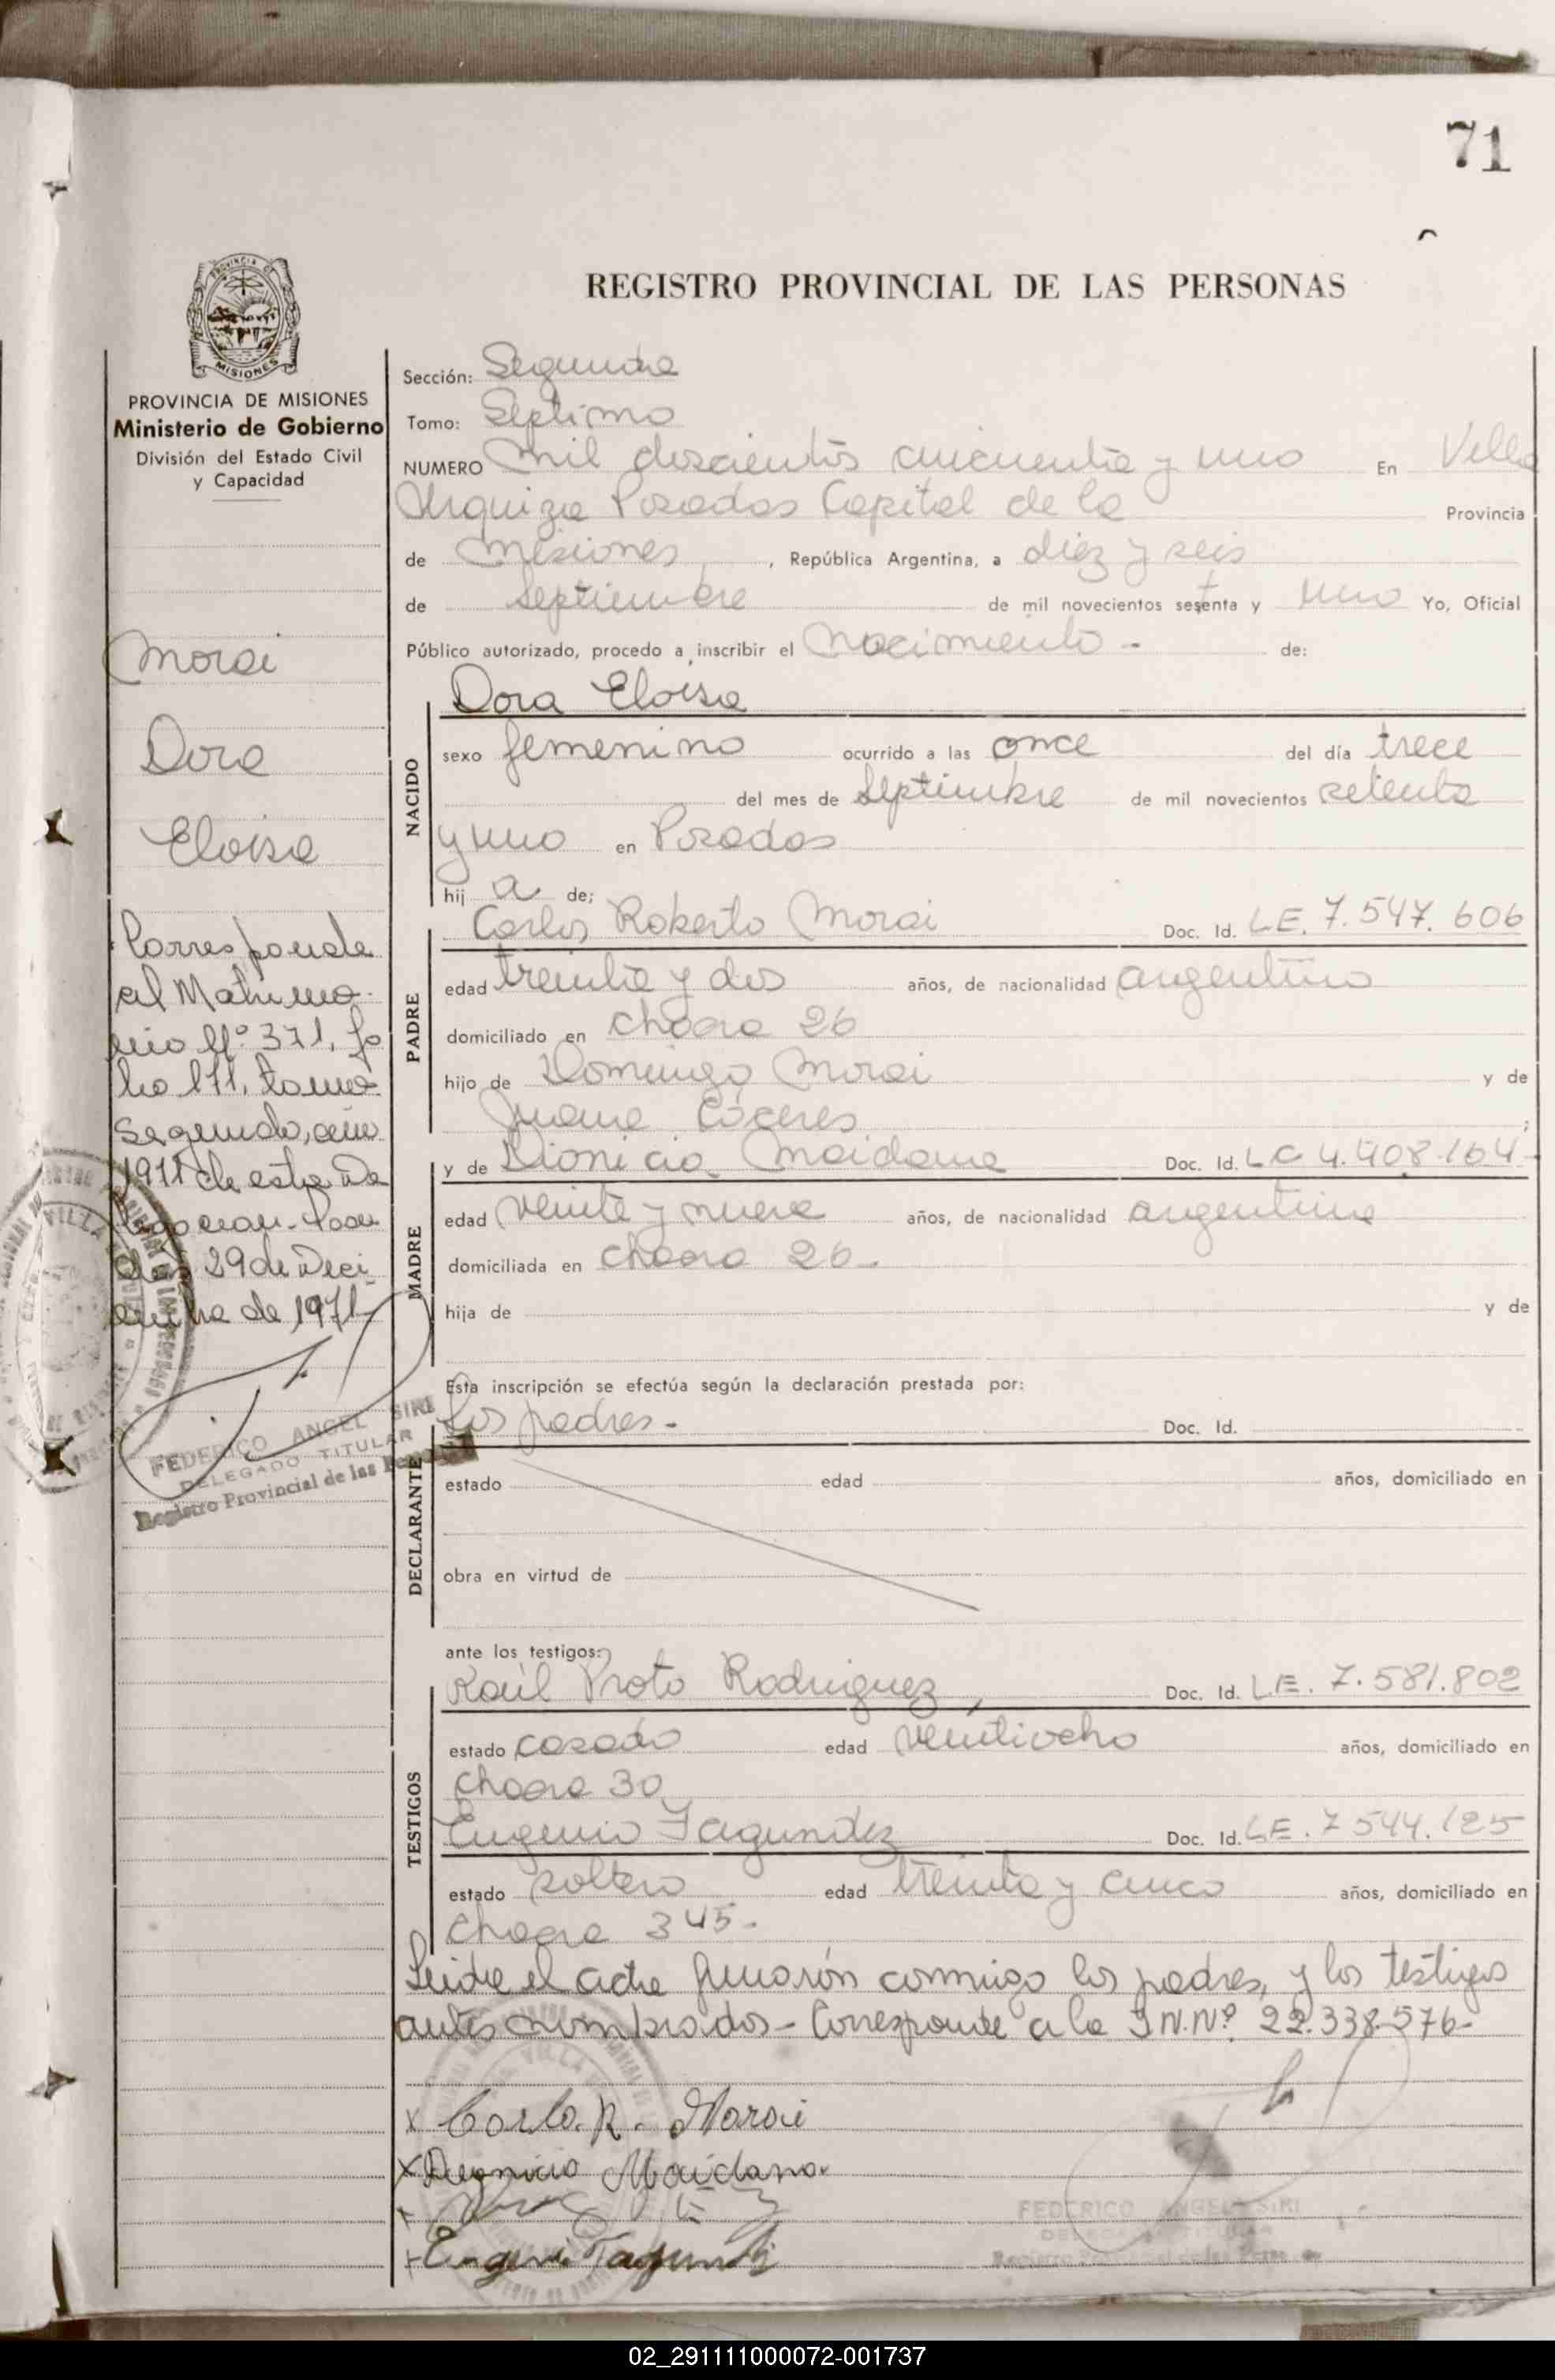 71
REGISTRO PROVINCIAL DE LAS PERSONAS
PROVINCIA DE MISIONES
Ministerio de Gobierno
División del Estado Civil
y Capacidad
Morai
Dora
Eloisa
Corresponde
al Matrimo-
nio Nº 371, fo
lio 171, tomo
segundo, año
1971 de esta De
legacion. Posa
das 29 de Dici
embre de 1971
FEDERICO ANGEL SIRI
DELEGADO TITULAR
Registro Provincial de las
Sección: Segunda
Tomo: Septimo
NUMERO Mil doscientos cincuenta y uno En Villa
Urquiza Posadas Capital de la Provincia
de Misiones, República Argentina, a diez y seis
de Septiembre de mil novecientos setenta y uno Yo, Oficial
Público autorizado, procedo a inscribir el Nacimiento - de:
Dora Eloisa
NACIDO
sexo femenino ocurrido a las once del día trece
del mes de Septiembre de mil novecientos setenta
y uno en Posadas
hij a de;
PADRE
Carlos Roberto Morai Doc. Id. LE. 7.547.606
edad treinta y dos años, de nacionalidad argentino
domiciliado en chacra 26
hijo de Domingo Morai y de
Juana Cáceres ;
MADRE
y de Dionicia Maidana Doc. Id. LC 4.408.164-
edad veinte y nueve años, de nacionalidad argentina
domiciliada en chacra 26-
hija de y de
Esta inscripción se efectúa según la declaración prestada por:
DECLARANTE
los padres- Doc. Id.
estado edad años, domiciliado en
obra en virtud de
ante los testigos:
TESTIGOS
Raúl Proto Rodriguez, Doc. Id. L.E. 7.581.802
estado casado edad veintiocho años, domiciliado en
chacra 30
Eugenio Fagundez Doc. Id. LE. 7 544.125
estado soltero edad treinta y cinco años, domiciliado en
chacra 345-
Leida el acta firmarón conmigo los padres, y los testigos
antes nombrados- Corresponde a la I N.Nº 22.338.576-
x Carlo. R. Morai
x Deonicia Maidana.
+ Eugenio Fagundez
FEDERICO ANGEL SIRI
DELEGADO TITULAR
Registro Provincial de las
02_291111000072-001737